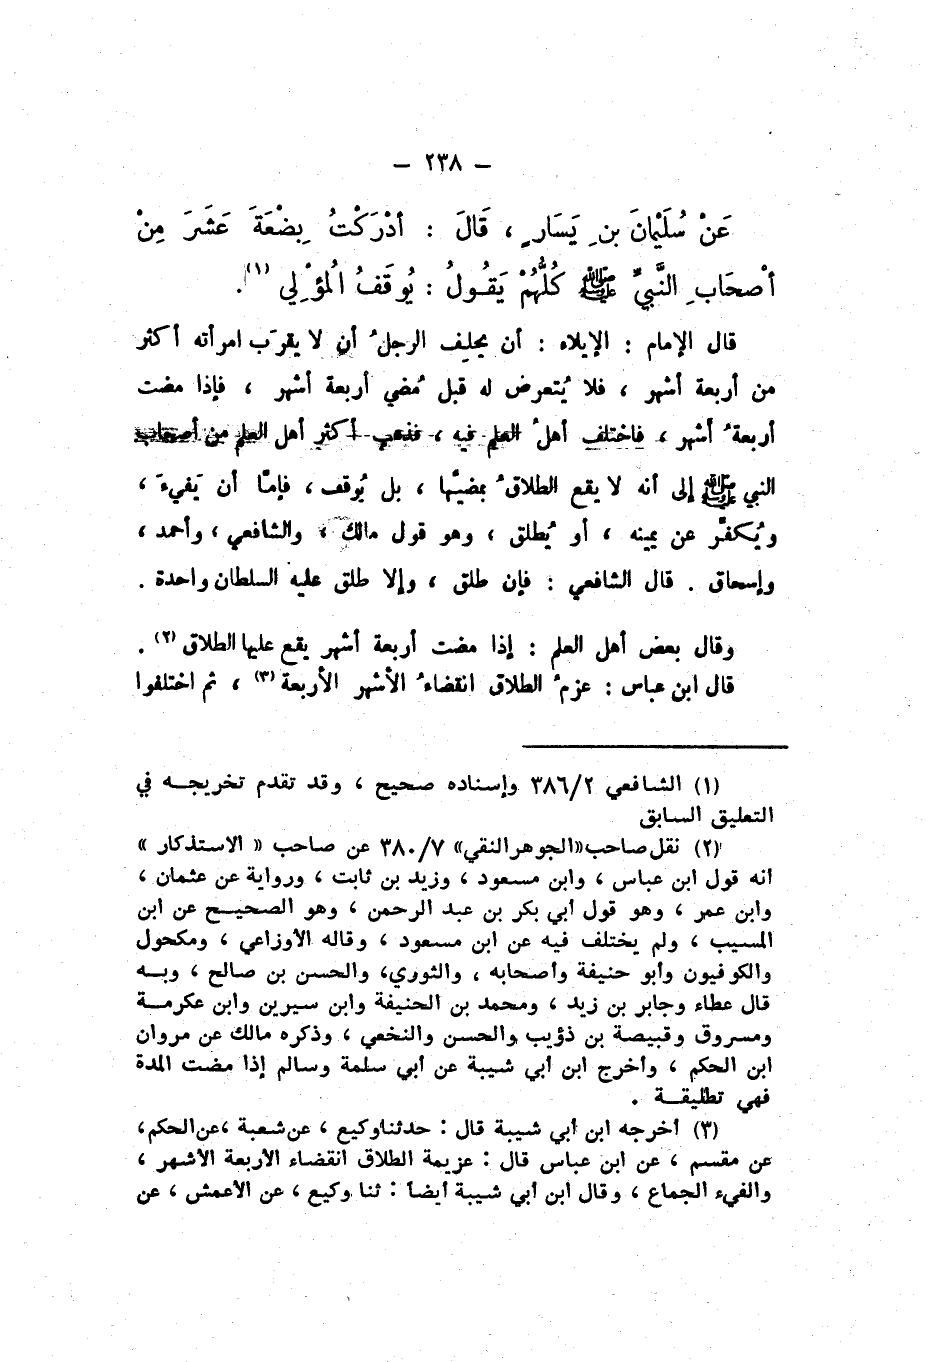 — ٢٣٨ —
عَنْ سُلَيْمَانَ بنِ يَسَارٍ ، قَالَ : أدْرَكْتُ بِضْعَةَ عَشَرَ مِنْ
أصْحَابِ النَّبيِّ ﷺ كُلُّهُمْ يَقُولُ : يُوقَفُ الْمُؤْلِي (١).
قال الإمام : الإيلاء : أن يحلِف الرجلُ أن لا يقرَب امرأته أكثر
من أربعة أشهر ، فلا يُتعرض له قبل مُضي أربعة أشهر ، فإذا مضت
أربعةُ أشهر ، فاختلف أهلُ العلم فيه ، فذهب أكثر أهل العلم من أصحاب
النبي ﷺ إلى أنه لا يقع الطلاقُ بمضيِّها ، بل يُوقف ، فإمّا أن يَفيءَ ،
ويُكفِّر عن يمينه ، أو يُطلق ، وهو قول مالك ، والشافعي ، وأحمد ،
وإسحاق . قال الشافعي : فإن طلق ، وإلا طلق عليه السلطان واحدة .
وقال بعض أهل العلم : إذا مضت أربعة أشهر يقع عليها الطلاق (٢) .
قال ابن عباس : عزمُ الطلاق انقضاءُ الأشهر الأربعة (٣) ، ثم اختلفوا
(١) الشافعي ٣٨٦/٢ وإسناده صحيح ، وقد تقدم تخريجـه في
التعليق السابق
(٢) نقل صاحب «الجوهر النقي» ٣٨٠/٧ عن صاحب « الاستذكار »
أنه قول ابن عباس ، وابن مسعود ، وزيد بن ثابت ، ورواية عن عثمان ،
وابن عمر ، وهو قول أبي بكر بن عبد الرحمن ، وهو الصحيـح عن ابن
المسيب ، ولم يختلف فيه عن ابن مسعود ، وقاله الأوزاعي ، ومكحول
والكوفيون وأبو حنيفة وأصحابه ، والثوري، والحسن بن صالح ، وبـه
قال عطاء وجابر بن زيد ، ومحمد بن الحنيفة وابن سيرين وابن عكرمـة
ومسروق وقبيصة بن ذؤيب والحسن والنخعي ، وذكره مالك عن مروان
ابن الحكم ، وأخرج ابن أبي شيبة عن أبي سلمة وسالم إذا مضت المدة
فهي تطليقـة .
(٣) أخرجه ابن أبي شيبة قال : حدثنا وكيع ، عن شعبة ،عن الحكم،
عن مقسم ، عن ابن عباس قال : عزيمة الطلاق انقضاء الأربعة الأشهر ،
والفيء الجماع ، وقال ابن أبي شيبة أيضاً : ثنا وكيع ، عن الأعمش ، عن